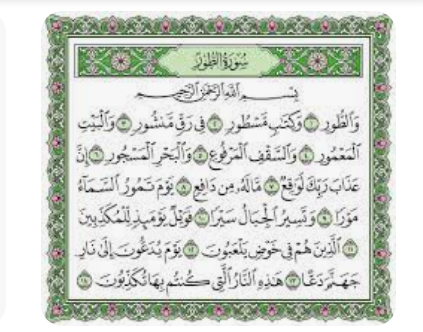 سُورَةُ الطُّورِ
بِسْمِ اللَّهِ الرَّحْمَٰنِ الرَّحِيمِ
وَالطُّورِ ١ وَكِتَابٍ مَسْطُورٍ ٢ فِي رَقٍّ مَنْشُورٍ ٣ وَالْبَيْتِ
الْمَعْمُورِ ٤ وَالسَّقْفِ الْمَرْفُوعِ ٥ وَالْبَحْرِ الْمَسْجُورِ ٦ إِنَّ
عَذَابَ رَبِّكَ لَوَاقِعٌ ٧ مَا لَهُ مِنْ دَافِعٍ ٨ يَوْمَ تَمُورُ السَّمَاءُ
مَوْرًا ٩ وَتَسِيرُ الْجِبَالُ سَيْرًا ١٠ فَوَيْلٌ يَوْمَئِذٍ لِلْمُكَذِّبِينَ
١١ الَّذِينَ هُمْ فِي خَوْضٍ يَلْعَبُونَ ١٢ يَوْمَ يُدَعُّونَ إِلَىٰ نَارِ
جَهَنَّمَ دَعًّا ١٣ هَٰذِهِ النَّارُ الَّتِي كُنْتُمْ بِهَا تُكَذِّبُونَ ١٤